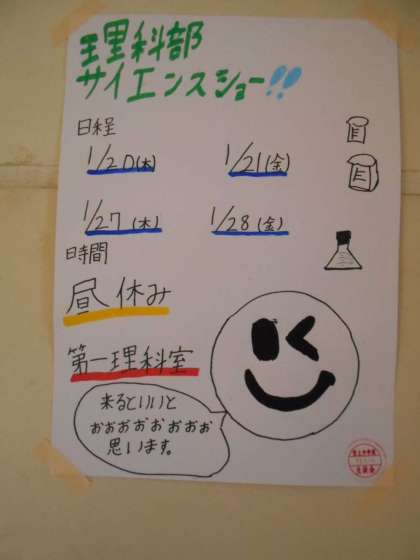 理科部
サイエンスショー!!
日程
1/20(木) 1/21(金)
1/27(木) 1/28(金)
時間
昼休み
第一理科室
来るといいと
おおおおおおおお
思います。